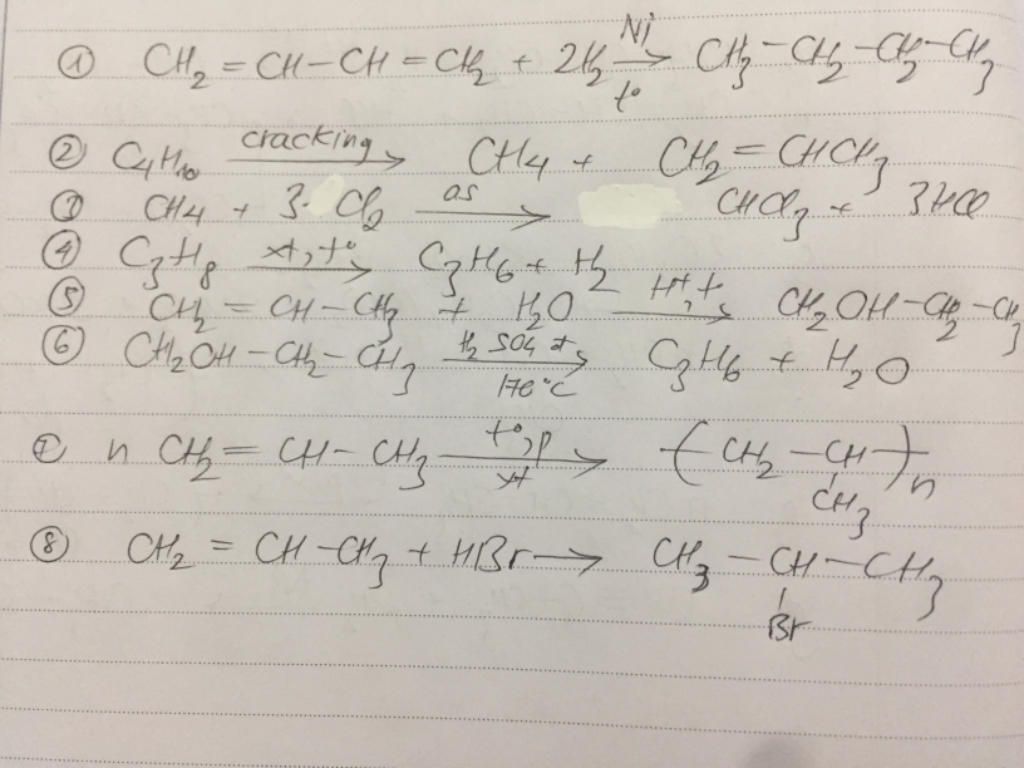 ① CH₂ = CH – CH = CH₂ + 2H₂ –Ni, t°→ CH₃ – CH₂ – CH₂ – CH₃
② C₄H₁₀ –cracking→ CH₄ + CH₂ = CHCH₃
③ CH₄ + 3 · Cl₂ –as→ CHCl₃ + 3HCl
④ C₃H₈ –xt, t°→ C₃H₆ + H₂
⑤ CH₂ = CH – CH₃ + H₂O –H⁺, t→ CH₂OH – CH₂ – CH₃
⑥ CH₂OH – CH₂ – CH₃ –H₂SO₄ đ, 170°C→ C₃H₆ + H₂O
⑦ n CH₂ = CH – CH₃ –t°, p, xt→ (CH₂ – CH(CH₃))ₙ
⑧ CH₂ = CH – CH₃ + HBr → CH₃ – CH(Br) – CH₃